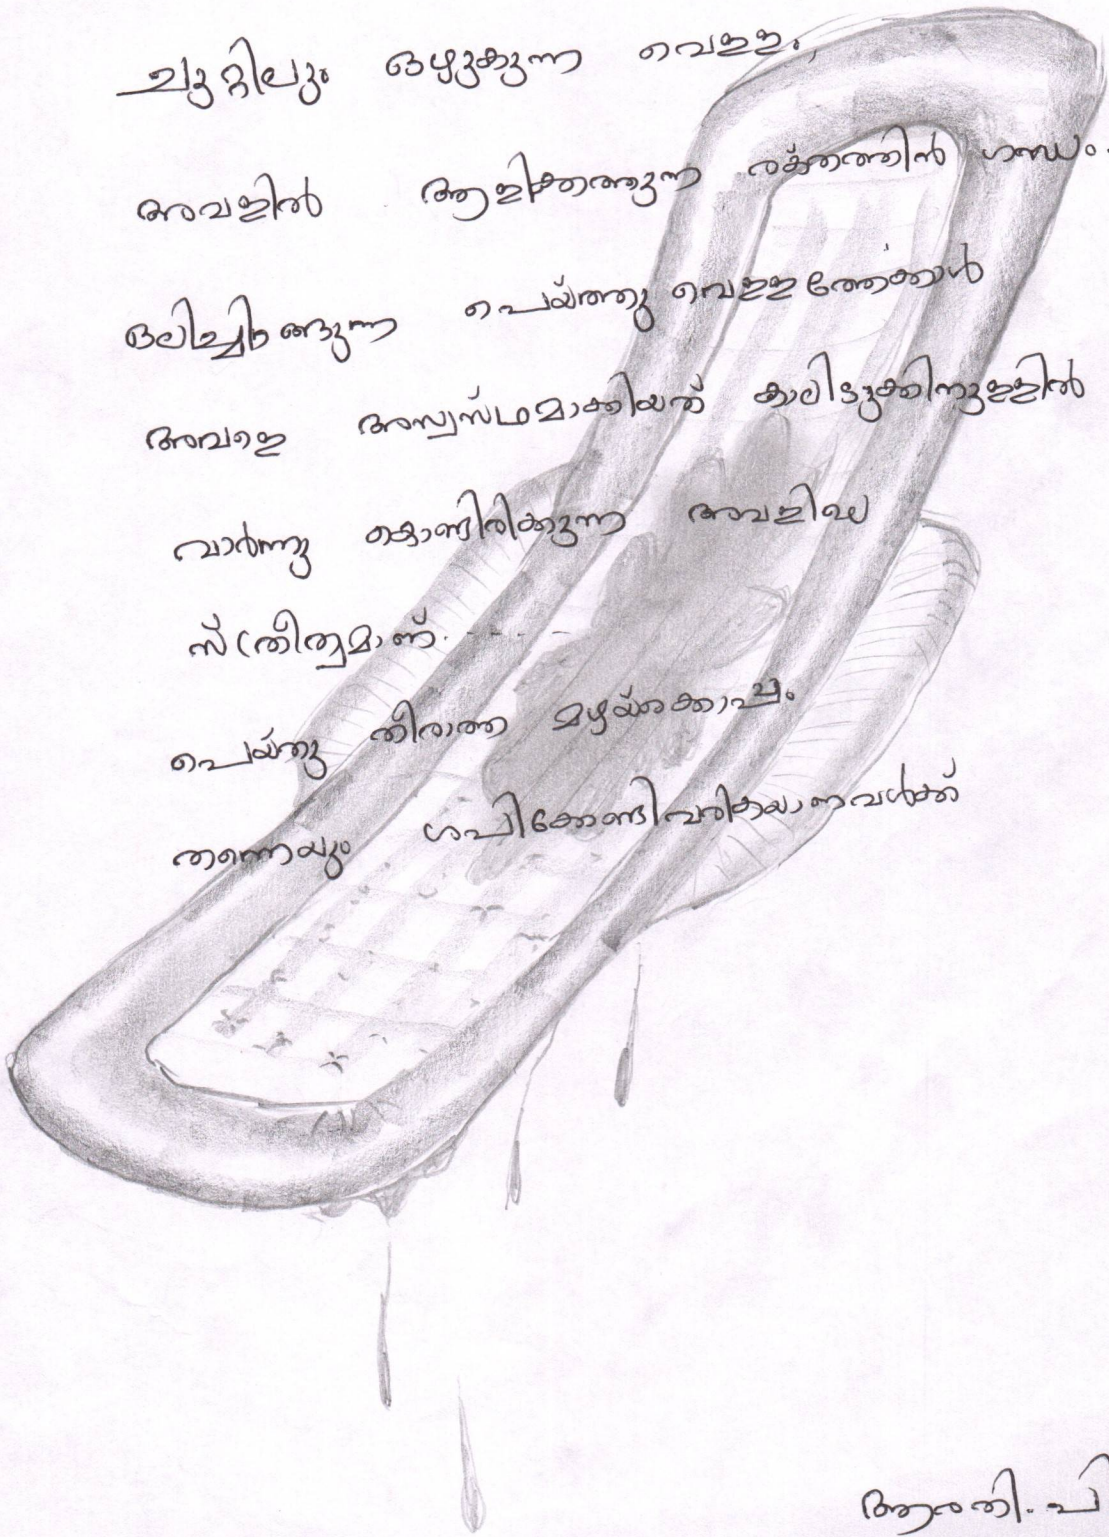 ചുറ്റിലും ഒഴുകുന്ന വെള്ളം,
അവളിൽ ആളിക്കത്തുന്ന രക്തത്തിൻ ഗന്ധം.
ഒലിച്ചിറങ്ങുന്ന പെയ്ത്തു വെള്ളത്തേക്കാൾ
അവളെ അസ്വസ്ഥമാക്കിയത് കാലിടുക്കിനുള്ളിൽ
വാർന്നു കൊണ്ടിരിക്കുന്ന അവളിലെ
സ്ത്രീത്വമാണ്.----
പെയ്തു തീരാത്ത മഴയ്ക്കൊപ്പം
തന്നെയും ശപിക്കേണ്ടിവരികയാണവൾക്ക്
ആരതി. പി